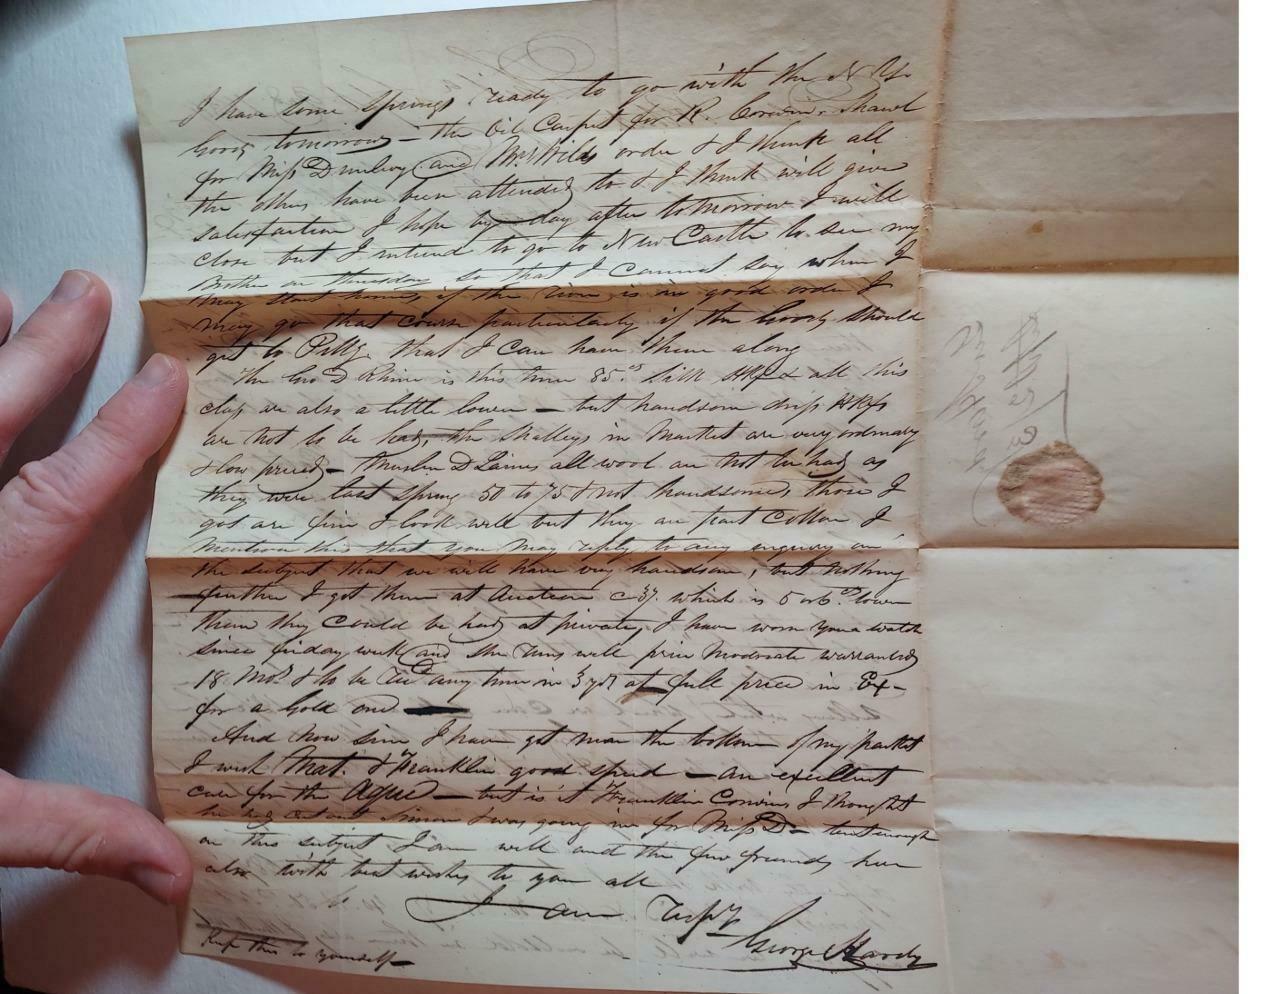 I have some springs ready to go with the N Y.
Goods tomorrow – the Oil Carpet for R. Corwin, Shawl
for Miss Dunlevy and Mrs Wilds order & I think all
the others have been attended to & I think will give
satisfaction I hope by day after tomorrow I will
close but I intend to go to New Castle to see my
Brother on thursday so that I cannot say when I
may start home, if the river is in good order I
may go that course particularly if the Goods should
get to Pittg. that I can have them along
The Gro D Rhine is this time 85.cs Silk Hkfs & all this
class are also a little lower – but handsome dress Hkfs
are not to be had, the Shalleys in Market are very ordinary
& low priced – Muslin D Laines all wool are not to be had as
they were last Spring 50 to 75 & not handsome, those I
got are fine & look well but they are part Cotton I
mention this that you may reply to any enquiry on
the subject that we will have very handsome, but nothing
further I got them at Auction c 37. which is 5 or 6.cs lower
than they could be had at private, I have worn your watch
since friday week and she runs well price moderate warranted
18 Mos & to be any time in 3 yrs at full price in Ex–
for a Gold one
And now since I have got near the bottom of my packet
I wish Mat. & Franklin good speed – an excellent
cure for the Ague – but is it Franklin Corwin I thought
he had cut out Simon & was going in for Miss D – but enough
on this subject I am well and the few friends here
also with best wishes to you all
I am Respy
George Hardy
Keep this to yourself –